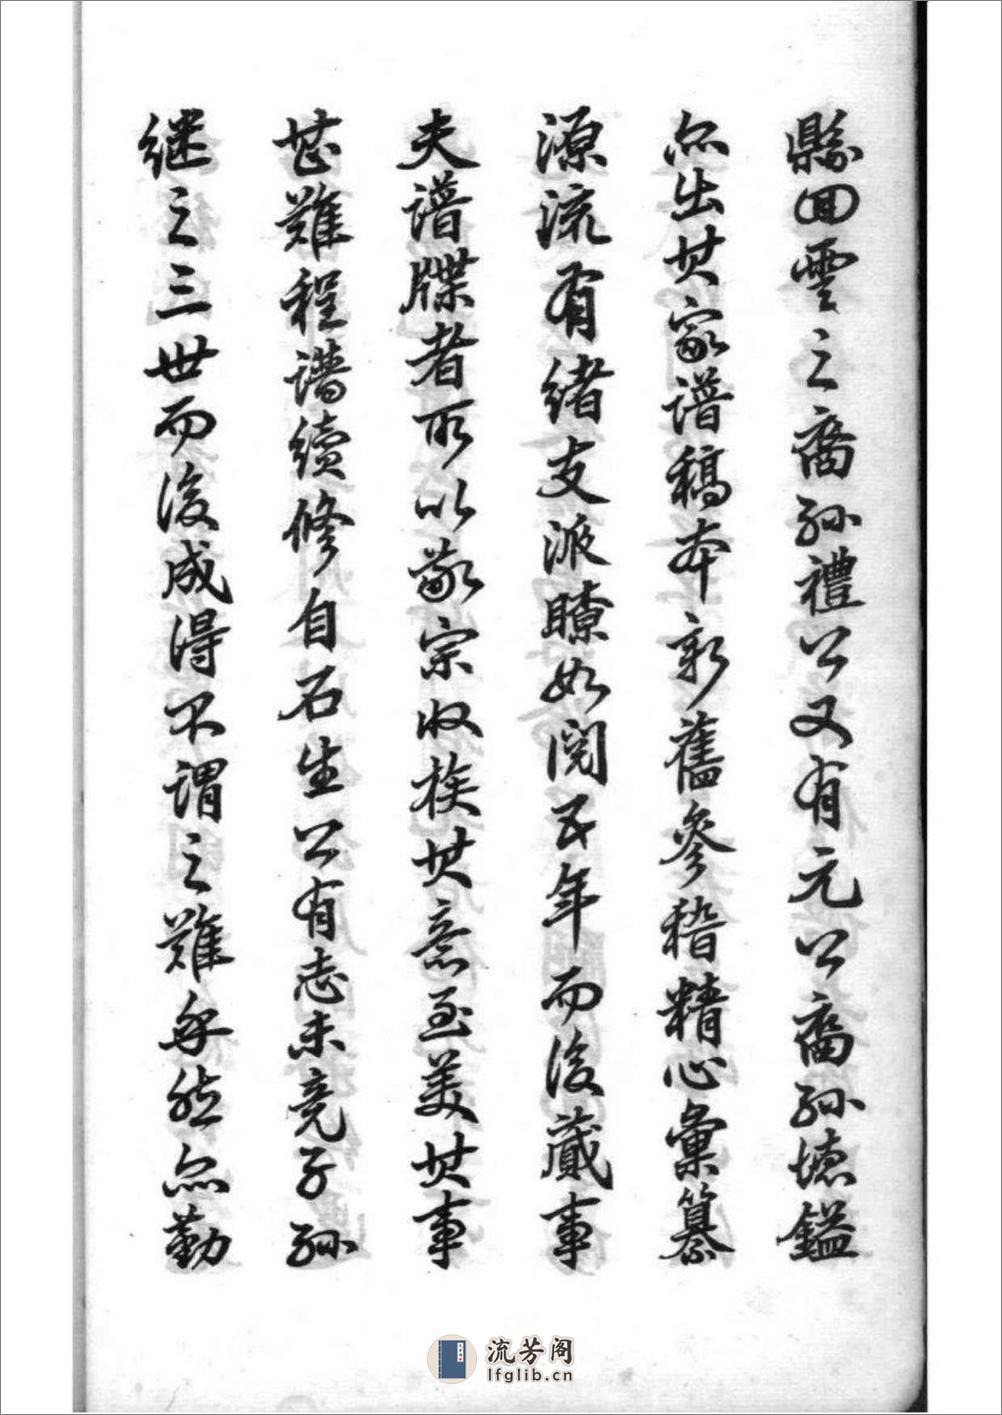 縣回雲之裔孫禮公又有元公裔孫德鎰
亦出其家譜稿本新舊參稽精心彙纂
源流有緒支派瞭如閱五年而後蕆事
夫譜牒者所以敬宗收族其意至美其事
甚難程譜續修自石生公有志未竟子孫
继之三世而後成得不謂之難乎然亦勤
流芳阁
lfglib.cn